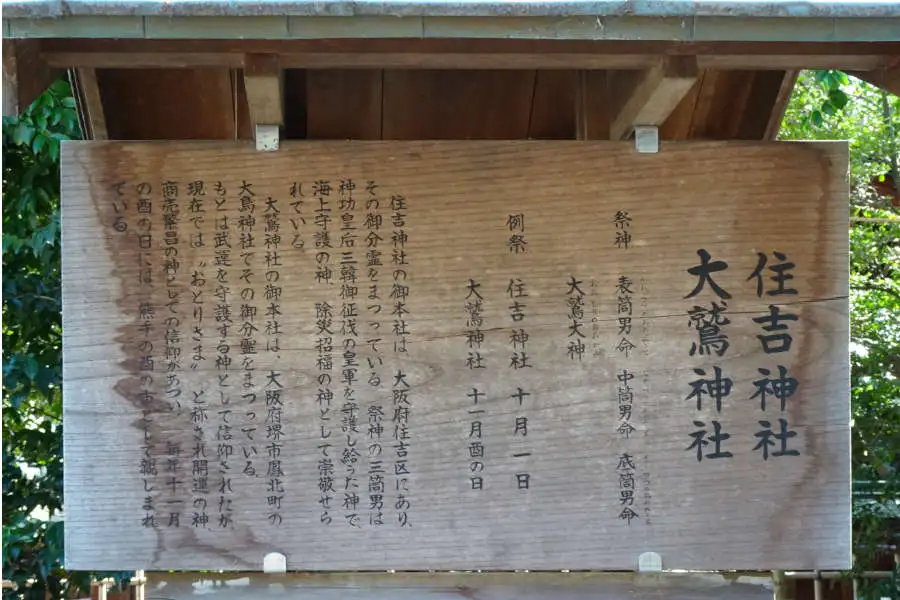 住吉神社
大鷲神社
祭神 表筒男命 中筒男命 底筒男命
大鷲大神
例祭 住吉神社 十月一日
大鷲神社 十一月酉の日
住吉神社の御本社は、大阪府住吉区にあり、
その御分霊をまつっている。祭神の三筒男は
神功皇后三韓御征伐の皇軍を守護し給うた神で、
海上守護の神、除災招福の神として崇敬せら
れている。
大鷲神社の御本社は、大阪府堺市鳳北町の
大鳥神社でその御分霊をまつっている。
もとは武運を守護する神として信仰されたが、
現在では〝おとりさま〟と称され開運の神、
商売繁昌の神としての信仰があつい。毎年十一月
の酉の日には、熊手の酉の市として親しまれ
ている